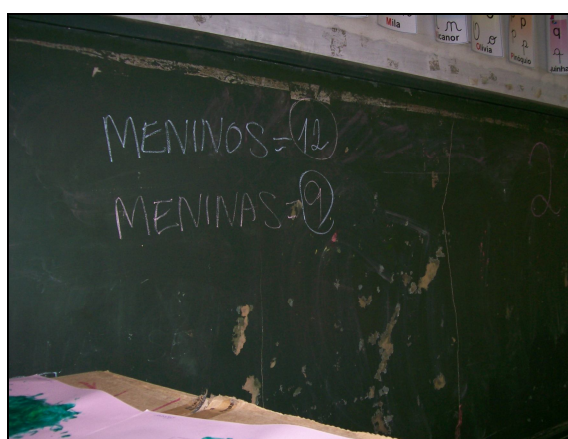 Mila
canor
Olivia
p
MENINOS=12.
MENINAS=9
2